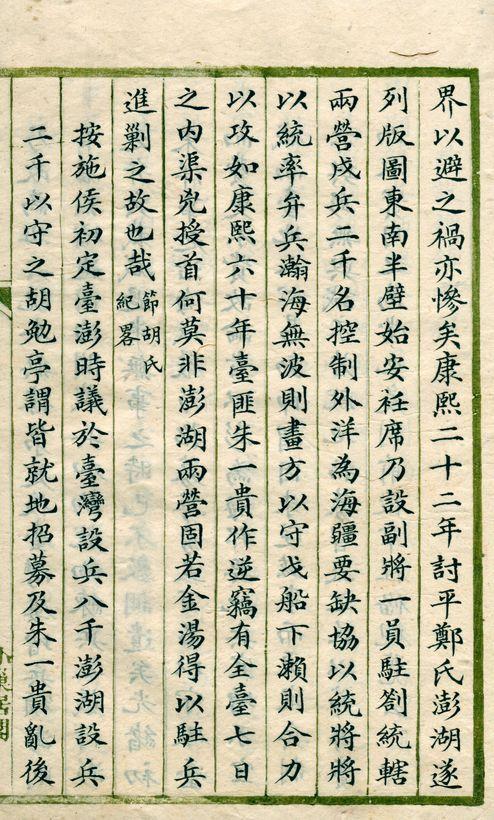 界以避之禍亦慘矣康熙二十二年討平鄭氏澎湖遂
列版圖東南半壁始安衽席乃設副將一員駐劄統轄
兩營戍兵二千名控制外洋為海疆要缺協以統將將
以統率弁兵瀚海無波則畫方以守戈船下瀨則合力
以攻如康熙六十年臺匪朱一貴作逆竊有全臺七日
之內渠兇授首何莫非澎湖兩營固若金湯得以駐兵
進剿之故也哉
節胡氏
紀畧
按施侯初定臺澎時議於臺灣設兵八千澎湖設兵
二千以守之胡勉亭謂皆就地招募及朱一貴亂後